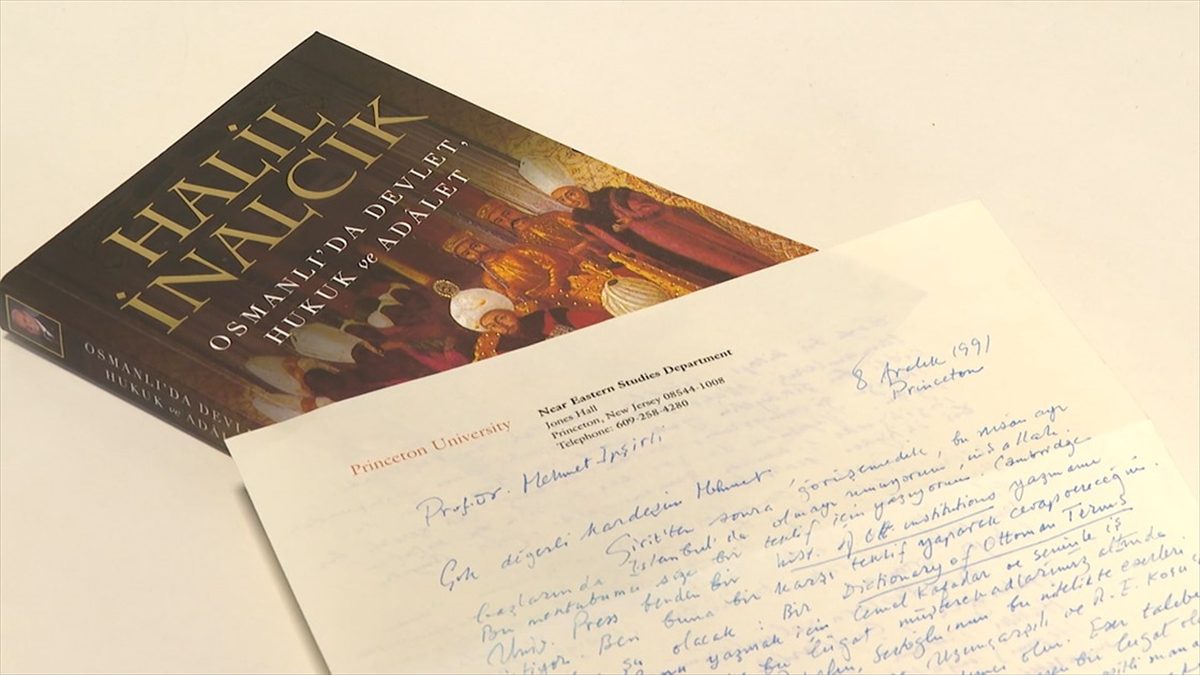 HALİL
İNALCIK
OSMANLI'DA DEVLET,
HUKUK ve ADÂLET
OSMANLI'DA DEVL
HUKUK ve ADÂL
Princeton University
Near Eastern Studies Department
Jones Hall
Princeton, New Jersey 08544-1008
Telephone: 609-258-4280
8 Aralık 1991
Princeton
Prof. Dr. Mehmet İpşirli
Çok değerli kardeşim Mehmet
Girit'ten sonra görüşemedik, bu nisan ayı
başlarında İstanbul'da olmayı umuyorum, inşallah.
Bu mektubumu size bir teklif için yazıyorum. Cambridge
Univ. Press benden bir hist. of Ott. institutions yazmamı
istiyor. Ben buna bir karşı teklif yaparak cevap vereceğim.
şu olacak: Bir Dictionary of Ottoman Terms
yazmak için Cemal Kafadar ve seninle iş
bu lûgat müşterek adlarımız altında
Sertoğlu'nun bu nitelikte eserleri.
Uzunçarşılı ve R. E. Koçu,
olur. Eser taleb
bir lûgat ol